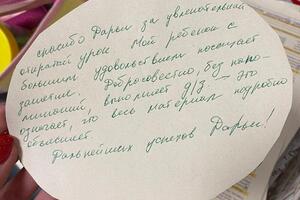 спасибо Дарьи за увлекательный
открытый урок. Мой ребенок с
большим удовольствием посещает
занятия. Добросовестно, без напо-
минаний, выполняет д/з - это
означает, что весь материал подробно
объясняет.
Дальнейших успехов Дарьи!